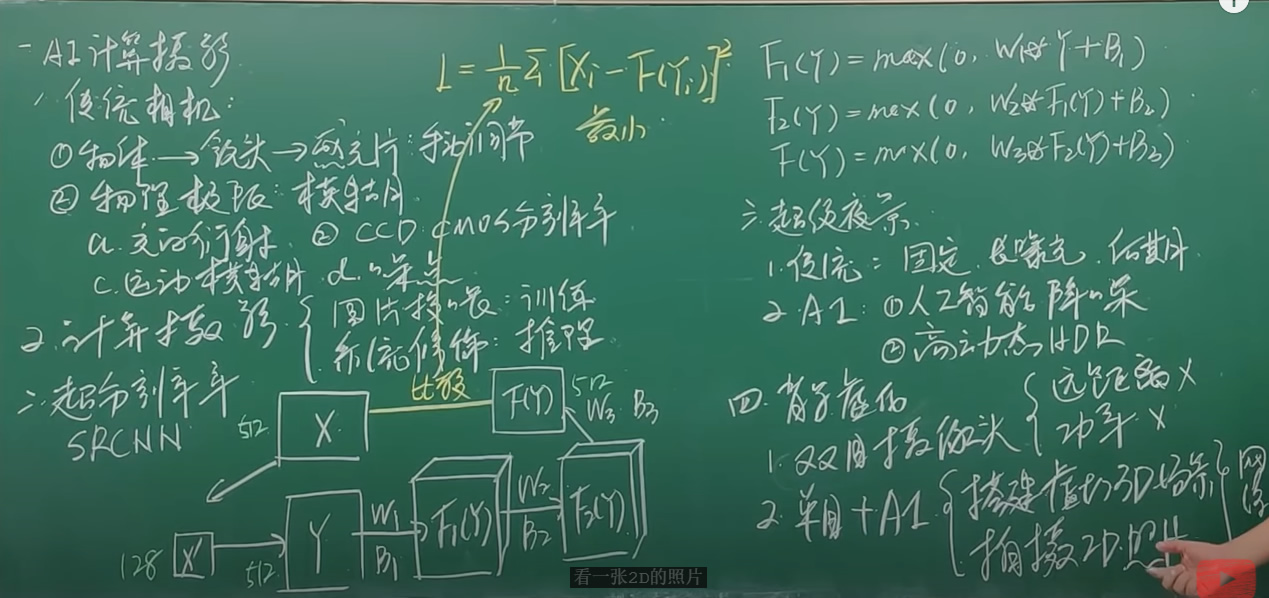 一 AI计算摄影
1. 传统相机:
①物体→镜头→感光片:手动调节
②物理极限:模糊
a.光的衍射 ② CCD CMOS分辨率
c.运动模糊 d.噪点
2.计算摄影
图片报废:训练
系统修饰:推理
二.超分辨率
SRCNN
512
X
比较
F(Y)
512
W3 B3
128
X'
512
Y
W1
B1
F1(Y)
W2
B2
F2(Y)
L = 1/n Σ [Xi - F(Yi)]²
最小
F1(Y) = max(0, W1*Y+B1)
F2(Y) = max(0, W2*F1(Y)+B2)
F(Y) = max(0, W3*F2(Y)+B3)
三.超级夜景
1.传统:固定、长曝光、后期
2.AI:①人工智能降噪
②高动态HDR
四.背景虚化
1.双目摄像头
远距离 X
功率 X
2.单目+AI
搭建 3D场景
拍摄2D照片
网
看一张2D的照片